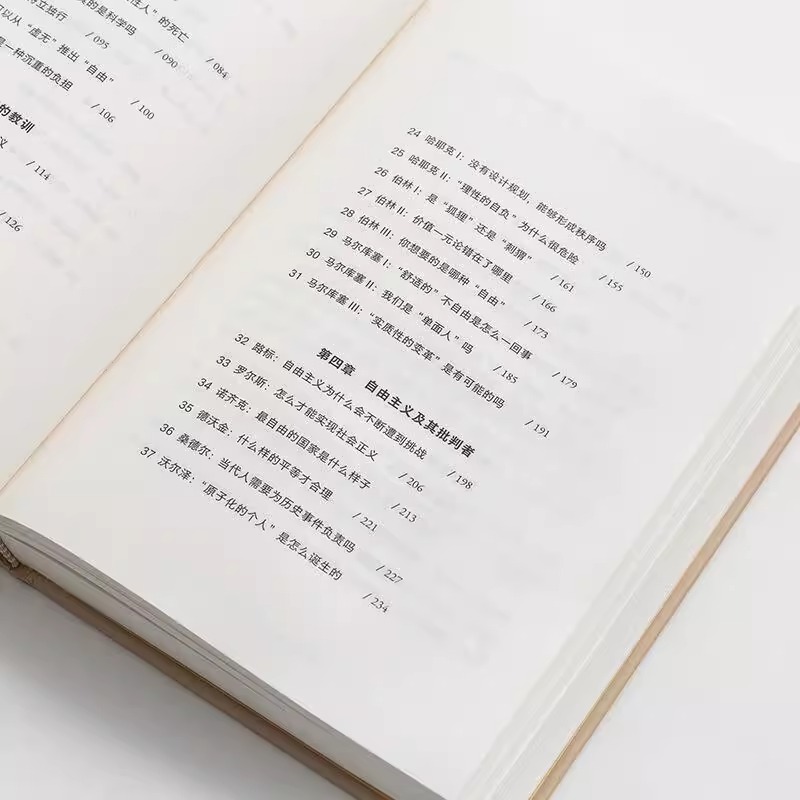 性人”的死亡 /084
的是科学吗 /090
立独行 /095
可以从“虚无”推出“自由” /100
是一种沉重的负担 /106
的教训
义 /114
/126
24 哈耶克 I：没有设计规划，能够形成秩序吗 /150
25 哈耶克 II：“理性的自负”为什么很危险 /155
26 伯林 I：是“狐狸”还是“刺猬” /161
27 伯林 II：价值一元论错在了哪里 /166
28 伯林 III：你想要的是哪种“自由” /173
29 马尔库塞 I：“舒适的”不自由是怎么一回事 /179
30 马尔库塞 II：我们是“单面人”吗 /185
31 马尔库塞 III：“实质性的变革”是有可能的吗 /191
第四章 自由主义及其批判者
32 路标：自由主义为什么会不断遭到挑战 /198
33 罗尔斯：怎么才能实现社会正义 /206
34 诺齐克：最自由的国家是什么样子 /213
35 德沃金：什么样的平等才合理 /221
36 桑德尔：当代人需要为历史事件负责吗 /227
37 沃尔泽：“原子化的个人”是怎么诞生的 /234